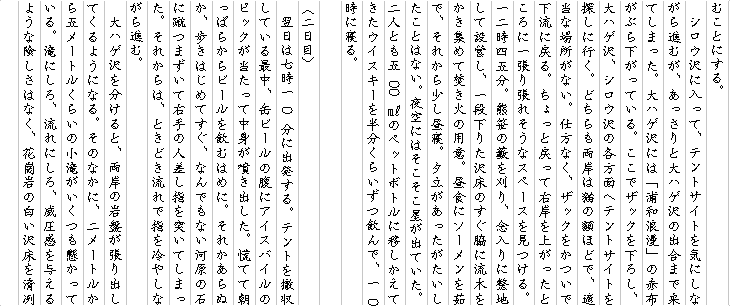 むことにする。
　シロウ沢に入って、テントサイトを気にしな
がら進むが、あっさりと大ハゲ沢の出合まで来
てしまった。大ハゲ沢には「浦和浪漫」の赤布
がぶら下がっている。ここでザックを下ろし、
大ハゲ沢、シロウ沢の各方面へテントサイトを
探しに行く。どちらも両岸は猫の額ほどで、適
当な場所がない。仕方なく、ザックをかついで
下流に戻る。ちょっと戻って右岸を上がったと
ころに一張り張れそうなスペースを見つける。
一二時四五分。熊笹の藪を刈り、念入りに整地
して設営し、一段下りた沢床のすぐ脇に流木を
かき集めて焚き火の用意。昼食にソーメンを茹
で、それから少し昼寝。夕立があったがたいし
たことはない。夜空にはそこそこ星が出ていた。
二人とも五〇〇㎖のペットボトルに移しかえて
きたウイスキーを半分くらいずつ飲んで、一〇
時に寝る。
〈二日目〉
　翌日は七時一〇分に出発する。テントを撤収
している最中、缶ビールの腹にアイスバイルの
ピックが当たって中身が噴き出した。慌てて朝
っぱらからビールを飲むはめに。それかあらぬ
か、歩きはじめてすぐ、なんでもない河原の石
に蹴つまずいて右手の人差し指を突いてしまっ
た。それからは、ときどき流れで指を冷やしな
がら進む。
　大ハゲ沢を分けると、両岸の岩盤が張り出し
てくるようになる。そのなかに、二メートルか
ら五メートルくらいの小滝がいくつも懸かって
いる。滝にしろ、流れにしろ、威圧感を与える
ような険しさはなく、花崗岩の白い沢床を清冽